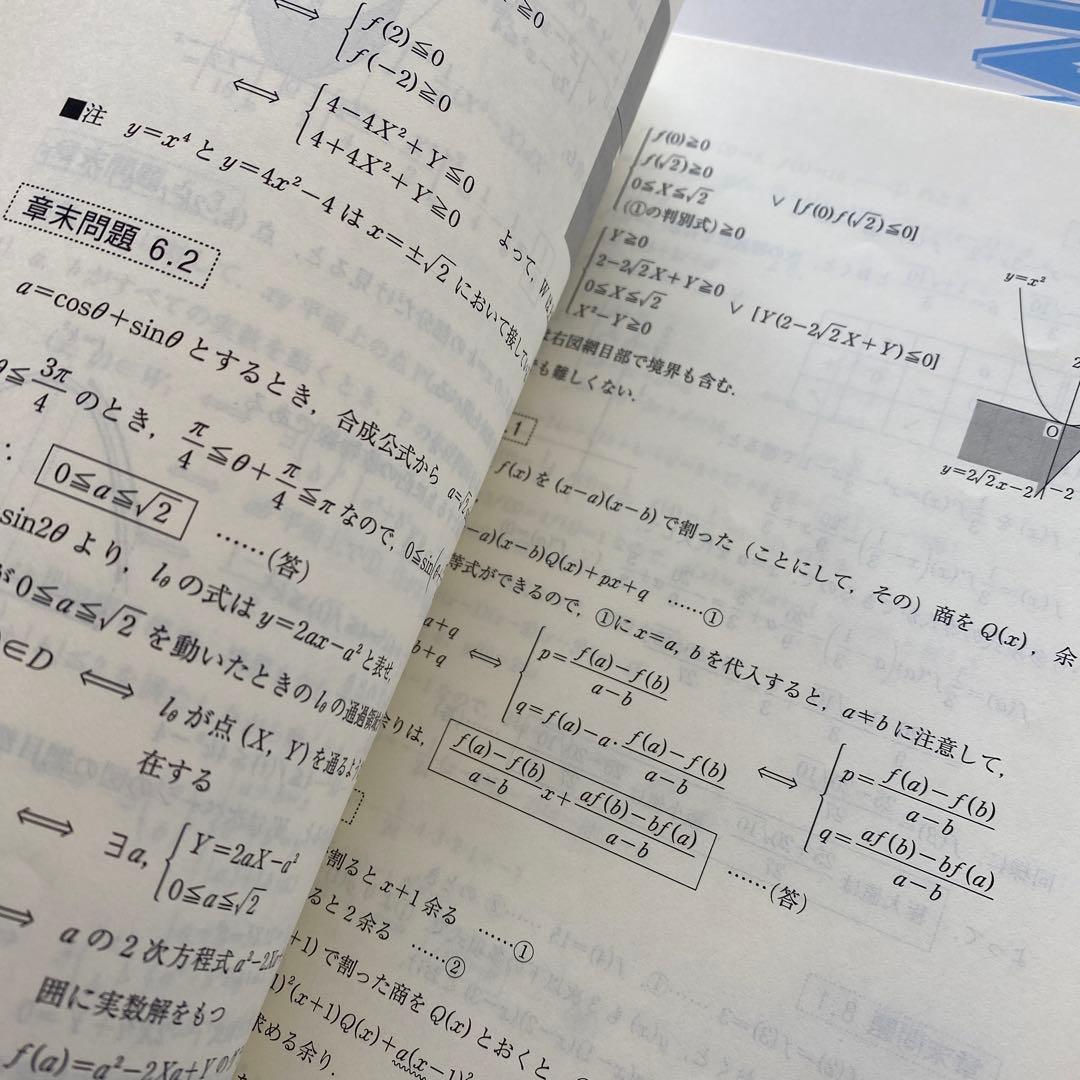 ⟺ {f(2)≦0
f(−2)≧0
⟺ {4−4X²+Y≦0
4+4X²+Y≧0
よって，W
■注 y=x⁴とy=4x²−4はx=±√2において接して
章末問題 6.2
a=cosθ+sinθとするとき，合成公式から a=√2
θ≦3π/4 のとき，π/4≦θ+π/4≦πなので，0≦sin
∴ 0≦a≦√2 ……(答)
sin2θより，lθの式はy=2ax−a²と表せ，
が0≦a≦√2を動いたときのlθの通過領域
∈D ⟺ lθが点(X, Y)を通るよう
在する
⟺ ∃a, {Y=2aX−a²
0≦a≦√2
aの2次方程式a²−2X
囲に実数解をもつ
f(a)=a²−2Xa+Yの
{f(0)≧0
f(√2)≧0
0≦X≦√2
(①の判別式)≧0
∨ [f(0)f(√2)≦0]
{Y≧0
2−2√2X+Y≧0
0≦X≦√2
X²−Y≧0
∨ [Y(2−2√2X+Y)≦0]
右図網目部で境界も含む．
も難しくない．
y=x²
2
O
y=2√2x−2
−2
.1
f(x)を(x−a)(x−b)で割った（ことにして，その）商をQ(x)，余
−a)(x−b)Q(x)+px+q ……①
等式ができるので，①にx=a, bを代入すると，a≠bに注意して，
a+q
b+q
⟺ {p=f(a)−f(b)/a−b
q=f(a)−a·f(a)−f(b)/a−b
⟺ {p=f(a)−f(b)/a−b
q=af(b)−bf(a)/a−b
りは，f(a)−f(b)/a−b x+af(b)−bf(a)/a−b ……(答)
割るとx+1余る ……①
ると2余る ……②
+1)で割った商をQ(x)とおくと
1)²(x+1)Q(x)+a(x−1)²
求める余り．